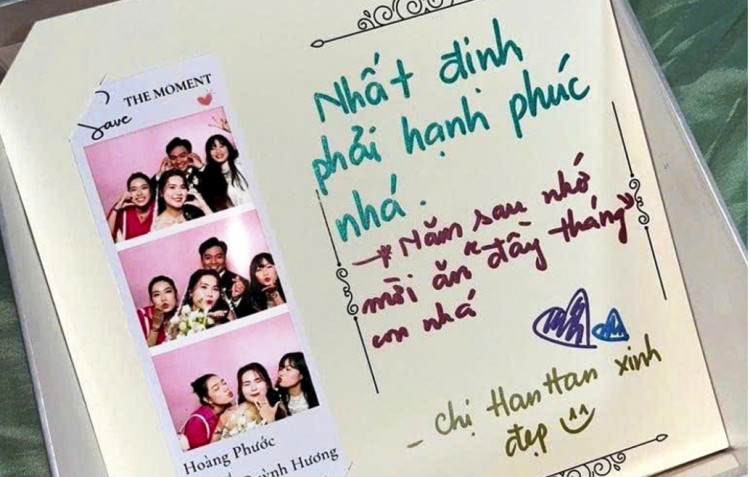 Save
THE MOMENT
Hoàng Phước
Quỳnh Hương
Nhất đinh
phải hạnh phúc
nhá.
→* Năm sau nhớ
mời ăn "đầy tháng"
con nhá
- Chị HanHan xinh
đẹp